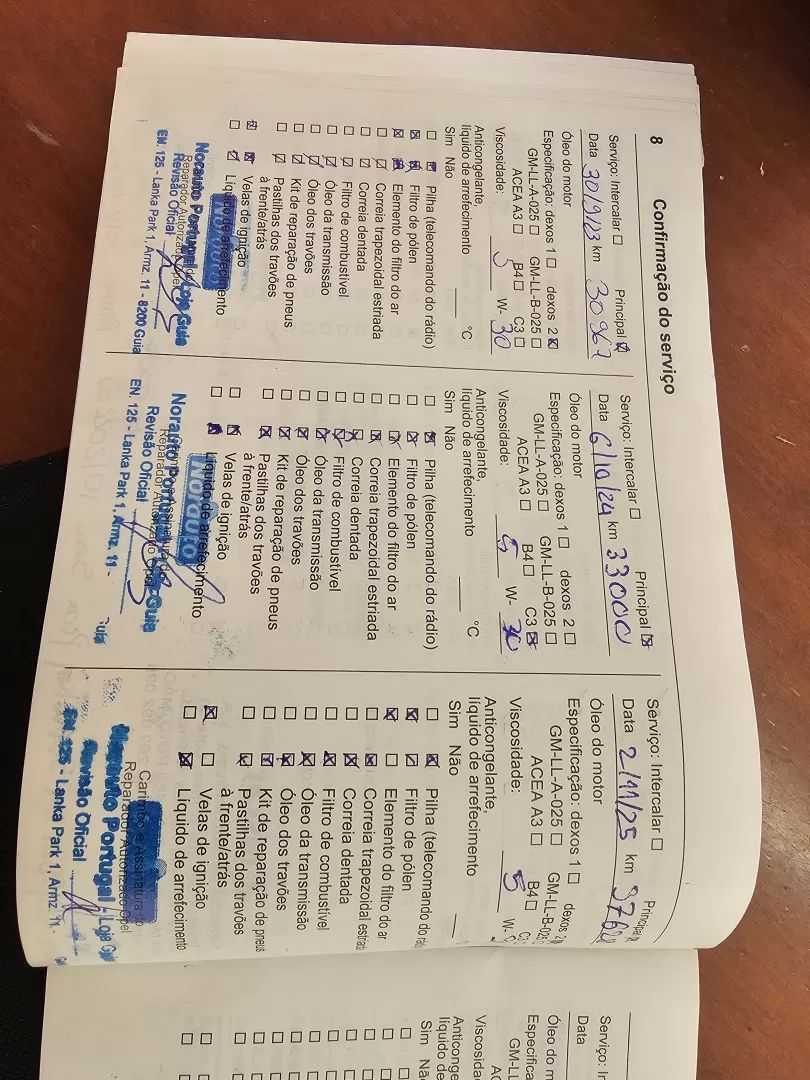 8 Confirmação do serviço
Serviço: Intercalar ☐ Principal ☒
Data 30/9/23 km 30967
Óleo do motor
Especificação: dexos 1 ☐ dexos 2 ☒
GM-LL-A-025 ☐ GM-LL-B-025 ☐
ACEA A3 ☐ B4 ☐ C3 ☐
Viscosidade: 5 W- 30
Anticongelante,
líquido de arrefecimento ____ °C
Sim Não
☐ ☒ Pilha (telecomando do rádio)
☒ ☒ Filtro de pólen
☒ ☒ Elemento do filtro do ar
☐ ☑ Correia trapezoidal estriada
☐ ☑ Correia dentada
☐ ☑ Filtro de combustível
☐ ☑ Óleo da transmissão
☐ ☑ Óleo dos travões
☐ ☑ Kit de reparação de pneus
☐ ☑ Pastilhas dos travões
à frente/atrás
☑ ☒ Velas de ignição
☐ ☑ Líquido de arrefecimento
Norauto
Norauto Portugal - Loja Guia
Reparador Autorizado Opel
Revisão Oficial
EN. 125 - Lanka Park 1, Armz. 11 - 8200 Guia
Serviço: Intercalar ☐ Principal ☒
Data 6/10/24 km 33000
Óleo do motor
Especificação: dexos 1 ☐ dexos 2 ☐
GM-LL-A-025 ☐ GM-LL-B-025 ☐
ACEA A3 ☐ B4 ☐ C3 ☒
Viscosidade: 5 W- 30
Anticongelante,
líquido de arrefecimento ____ °C
Sim Não
☐ ☒ Pilha (telecomando do rádio)
☐ ☒ Filtro de pólen
☐ ☒ Elemento do filtro do ar
☐ ☒ Correia trapezoidal estriada
☐ ☒ Correia dentada
☐ ☒ Filtro de combustível
☐ ☒ Óleo da transmissão
☐ ☒ Óleo dos travões
☐ ☒ Kit de reparação de pneus
☐ ☒ Pastilhas dos travões
à frente/atrás
☐ ☒ Velas de ignição
☐ ☒ Líquido de arrefecimento
Norauto
Carimbo e Assinatura do
Reparador Autorizado Opel
Norauto Guia
Revisão Oficial
EN. 125 - Lanka Park 1, Armz. 11 - Guia
Serviço: Intercalar ☐ Principal ☒
Data 2/11/25 km
Óleo do motor
Especificação: dexos 1 ☐ dexos 2
GM-LL-A-025 ☐ GM-LL-B-025
ACEA A3 ☐ B4 ☐
Viscosidade: 5 W-
Anticongelante,
líquido de arrefecimento ____
Sim Não
☐ ☒ Pilha (telecomando do
☒ ☐ Filtro de pólen
☒ ☐ Elemento do filtro do ar
☐ ☒ Correia trapezoidal estriada
☐ ☒ Correia dentada
☐ ☒ Filtro de combustível
☐ ☒ Óleo da transmissão
☐ ☒ Óleo dos travões
☐ ☒ Kit de reparação de pneus
☐ ☒ Pastilhas dos travões
à frente/atrás
☒ ☐ Velas de ignição
☐ ☒ Líquido de arrefecimento
Carimbo e Assinatura do
Reparador Autorizado Opel
Norauto Portugal - Loja Guia
Revisão Oficial
EN. 125 - Lanka Park 1, Armz. 11 -
Serviço:
Data
Óleo do motor
Especifica
GM-LL
Viscosidad
Anticonge
líquido de
Sim Nã